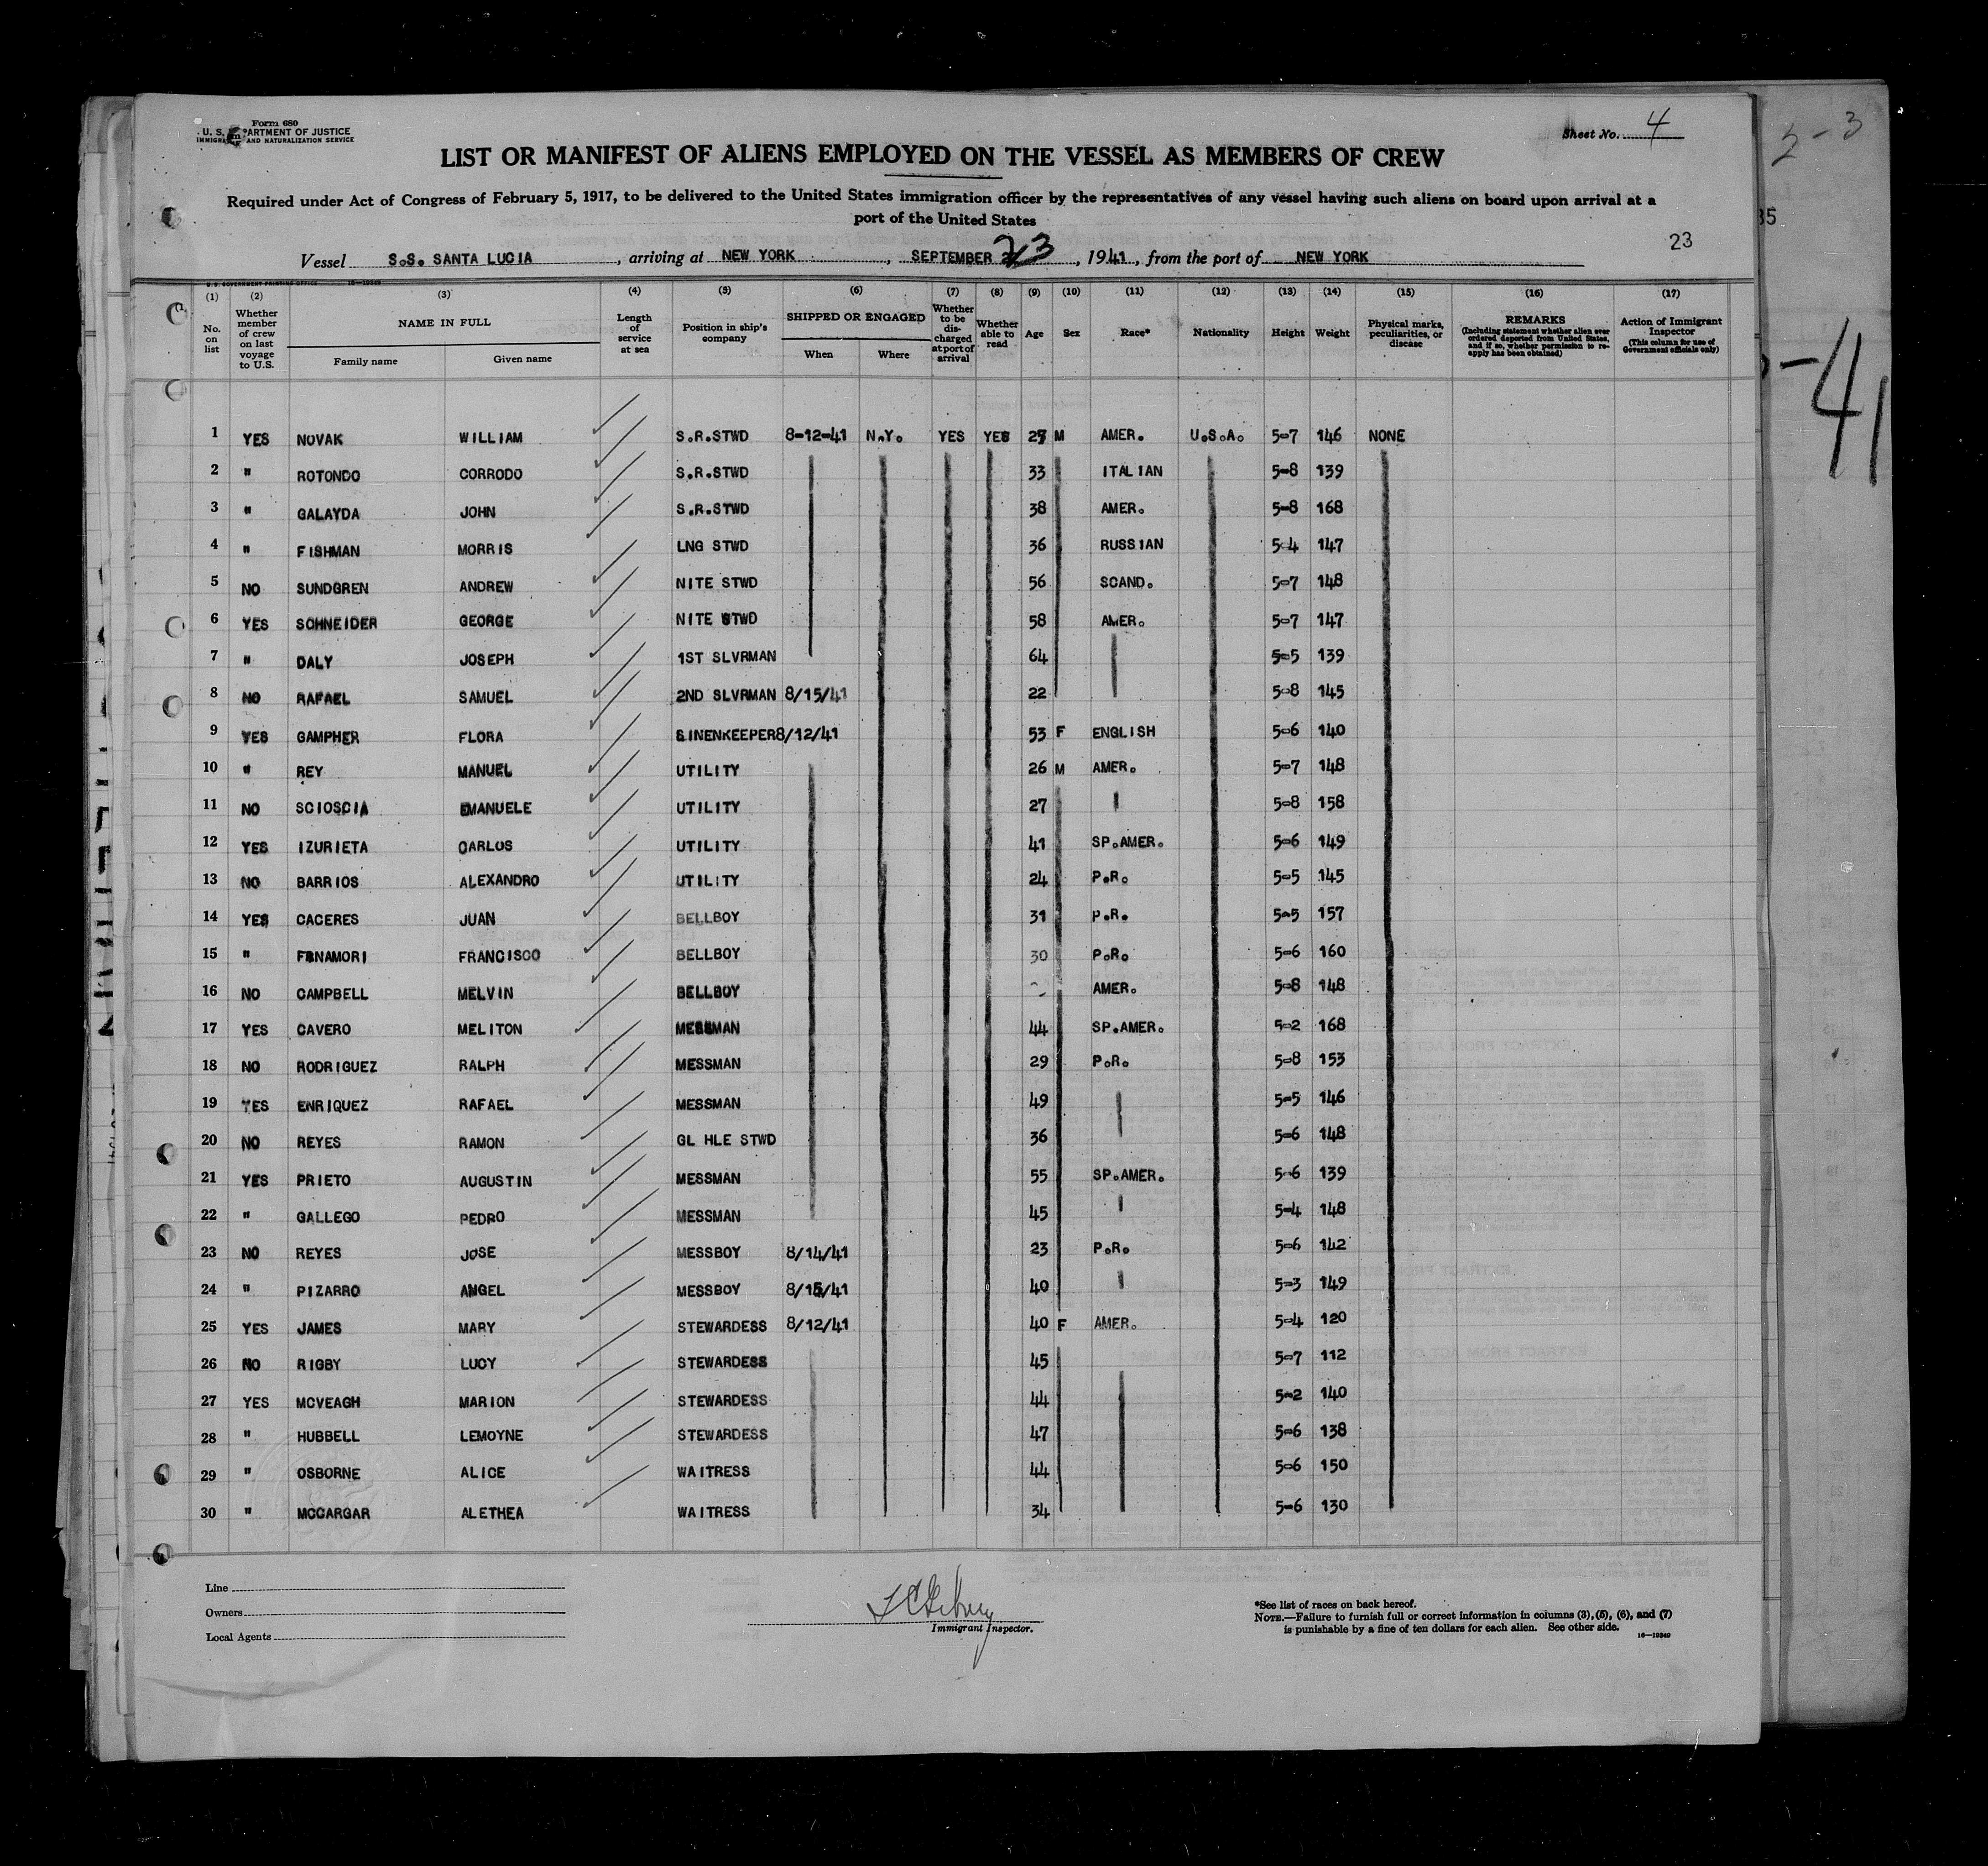 Form 680
U. S. DEPARTMENT OF JUSTICE
IMMIGRATION AND NATURALIZATION SERVICE
Sheet No. 4
2-3
LIST OR MANIFEST OF ALIENS EMPLOYED ON THE VESSEL AS MEMBERS OF CREW
Required under Act of Congress of February 5, 1917, to be delivered to the United States immigration officer by the representatives of any vessel having such aliens on board upon arrival at a
port of the United States
35
23
Vessel S.S. SANTA LUCIA, arriving at NEW YORK, SEPTEMBER 23, 1941, from the port of NEW YORK
U.S. GOVERNMENT PRINTING OFFICE 16—19349
(1) (2) (3) (4) (5) (6) (7) (8) (9) (10) (11) (12) (13) (14) (15) (16) (17)
No. on list
Whether member of crew on last voyage to U.S.
NAME IN FULL
Family name
Given name
Length of service at sea
Position in ship's company
SHIPPED OR ENGAGED
When
Where
Whether to be discharged at port of arrival
Whether able to read
Age
Sex
Race*
Nationality
Height
Weight
Physical marks, peculiarities, or disease
REMARKS
(Including statement whether alien ever ordered deported from United States, and if so, whether permission to reapply has been obtained)
Action of Immigrant Inspector
(This column for use of Government officials only)
-41
1 YES NOVAK WILLIAM S.R.STWD 8-12-41 N.Y. YES YES M AMER. U.S.A. 5-7 146 NONE
2 " ROTONDO CORRODO S.R.STWD 33 ITALIAN 5-8 139
3 " GALAYDA JOHN S.R.STWD 38 AMER. 5-8 168
4 " FISHMAN MORRIS LNG STWD 36 RUSSIAN 5-4 147
5 NO SUNDGREN ANDREW NITE STWD 56 SCAND. 5-7 148
6 YES SCHNEIDER GEORGE NITE STWD 58 AMER. 5-7 147
7 " DALY JOSEPH 1ST SLVRMAN 64 5-5 139
8 NO RAFAEL SAMUEL 2ND SLVRMAN 8/15/41 22 5-8 145
9 YES GAMPHER FLORA LINENKEEPER 8/12/41 53 F ENGLISH 5-6 140
10 " REY MANUEL UTILITY 26 M AMER. 5-7 148
11 NO SCIOSCIA EMANUELE UTILITY 27 5-8 158
12 YES IZURIETA CARLOS UTILITY 41 SP.AMER. 5-6 149
13 NO BARRIOS ALEXANDRO UTILITY 24 P.R. 5-5 145
14 YES CACERES JUAN BELLBOY 31 P.R. 5-5 157
15 " FANAMORI FRANCISCO BELLBOY 30 P.R. 5-6 160
16 NO CAMPBELL MELVIN BELLBOY AMER. 5-8 148
17 YES CAVERO MELITON MESSMAN 44 SP.AMER. 5-2 168
18 NO RODRIGUEZ RALPH MESSMAN 29 P.R. 5-8 153
19 YES ENRIQUEZ RAFAEL MESSMAN 49 5-5 146
20 NO REYES RAMON GL HLE STWD 36 5-6 148
21 YES PRIETO AUGUSTIN MESSMAN 55 SP.AMER. 5-6 139
22 " GALLEGO PEDRO MESSMAN 45 5-4 148
23 NO REYES JOSE MESSBOY 8/14/41 23 P.R. 5-6 142
24 " PIZARRO ANGEL MESSBOY 8/15/41 40 5-3 149
25 YES JAMES MARY STEWARDESS 8/12/41 40 F AMER. 5-4 120
26 NO RIGBY LUCY STEWARDESS 45 5-7 112
27 YES MCVEAGH MARION STEWARDESS 44 5-2 140
28 " HUBBELL LEMOYNE STEWARDESS 47 5-6 138
29 " OSBORNE ALICE WAITRESS 44 5-6 150
30 " MCCARGAR ALETHEA WAITRESS 34 5-6 130
Line
Owners
Local Agents
Immigrant Inspector.
*See list of races on back hereof.
NOTE.—Failure to furnish full or correct information in columns (3), (5), (6), and (7)
is punishable by a fine of ten dollars for each alien. See other side.
16—19349